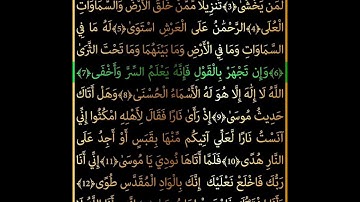 لِّمَن يَخْشَىٰ ﴿3﴾ تَنزِيلًا مِّمَّنْ خَلَقَ الْأَرْضَ وَالسَّمَاوَاتِ
الْعُلَى ﴿4﴾ الرَّحْمَٰنُ عَلَى الْعَرْشِ اسْتَوَىٰ ﴿5﴾ لَهُ مَا فِي
السَّمَاوَاتِ وَمَا فِي الْأَرْضِ وَمَا بَيْنَهُمَا وَمَا تَحْتَ الثَّرَىٰ
﴿6﴾ وَإِن تَجْهَرْ بِالْقَوْلِ فَإِنَّهُ يَعْلَمُ السِّرَّ وَأَخْفَى ﴿7﴾
اللَّهُ لَا إِلَٰهَ إِلَّا هُوَ لَهُ الْأَسْمَاءُ الْحُسْنَىٰ ﴿8﴾ وَهَلْ أَتَاكَ
حَدِيثُ مُوسَىٰ ﴿9﴾ إِذْ رَأَىٰ نَارًا فَقَالَ لِأَهْلِهِ امْكُثُوا إِنِّي
آنَسْتُ نَارًا لَّعَلِّي آتِيكُم مِّنْهَا بِقَبَسٍ أَوْ أَجِدُ عَلَى
النَّارِ هُدًى ﴿10﴾ فَلَمَّا أَتَاهَا نُودِيَ يَا مُوسَىٰ ﴿11﴾ إِنِّي أَنَا
رَبُّكَ فَاخْلَعْ نَعْلَيْكَ إِنَّكَ بِالْوَادِ الْمُقَدَّسِ طُوًى ﴿12﴾